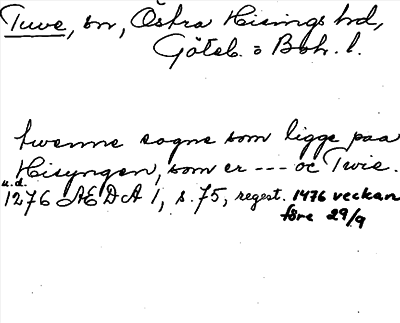 Tuve, sn, Östra Hisings hd,
Göteb. o Boh. l.
twenne sogne som ligge paa
Hisyngen, som er --- oc Twie.
u.d.
1276 ÆDA 1, s. 75, regest. 1476 veckan
före 29/9